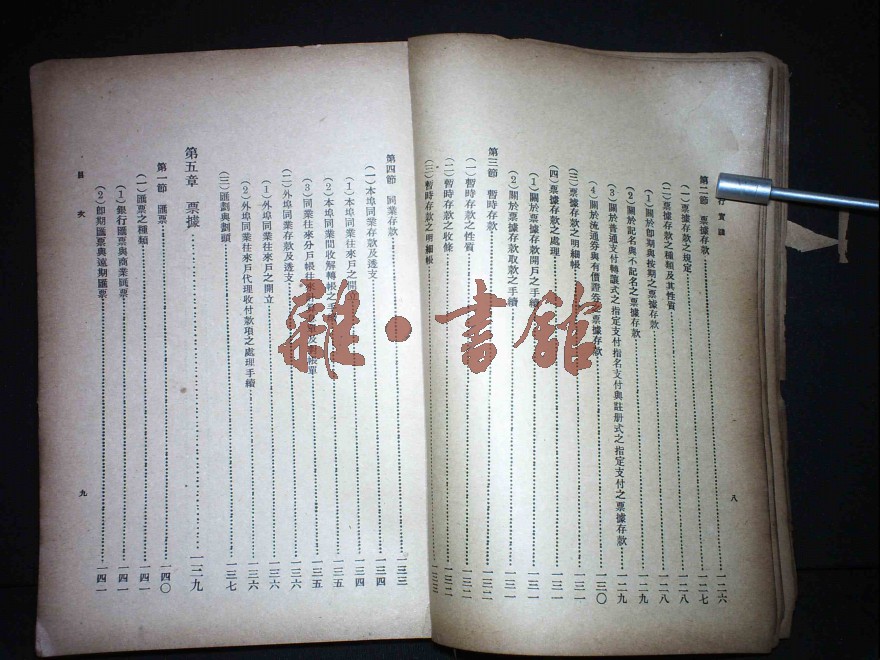 行實識
第二節 票據存款 一二六
(一)票據存款之規定 一二七
(二)票據存款之種類及其性質 一二八
(1)關於即期與按期之票據存款 一二八
(2)關於記名與不記名之票據存款 一二九
(3)關於普通支付轉讓式之指定支付指名支付與註册式之指定支付之票據存款 一二九
(4)關於流通券與有價證券之票據存款 一三〇
(三)票據存款之明細帳 一三一
(四)票據存款之處理 一三一
(1)關於票據存款開戶之手續 一三一
(2)關於票據存款取款之手續 一三一
第三節 暫時存款 一三二
(一)暫時存款之性質 一三二
(二)暫時存款之收條 一三二
(三)暫時存款之明細帳
八
第四節 同業存款 一三三
(一)本埠同業存款及透支 一三四
(1)本埠同業往來戶之開立 一三四
(2)本埠同業間收解轉帳之手 一三五
(3)同業往來分戶帳往來 單及 帳單 一三五
(二)外埠同業存款及透支 一三六
(1)外埠同業往來戶之開立 一三六
(2)外埠同業往來戶代理收付款項之處理手續 一三六
(三)匯劃與劃頭 一三七
第五章 票據 一三九
第一節 匯票 一四〇
(一)匯票之種類 一四一
(1)銀行匯票與商業匯票 一四一
(2)即期匯票與遠期匯票 一四一
目次
九
雜·書館